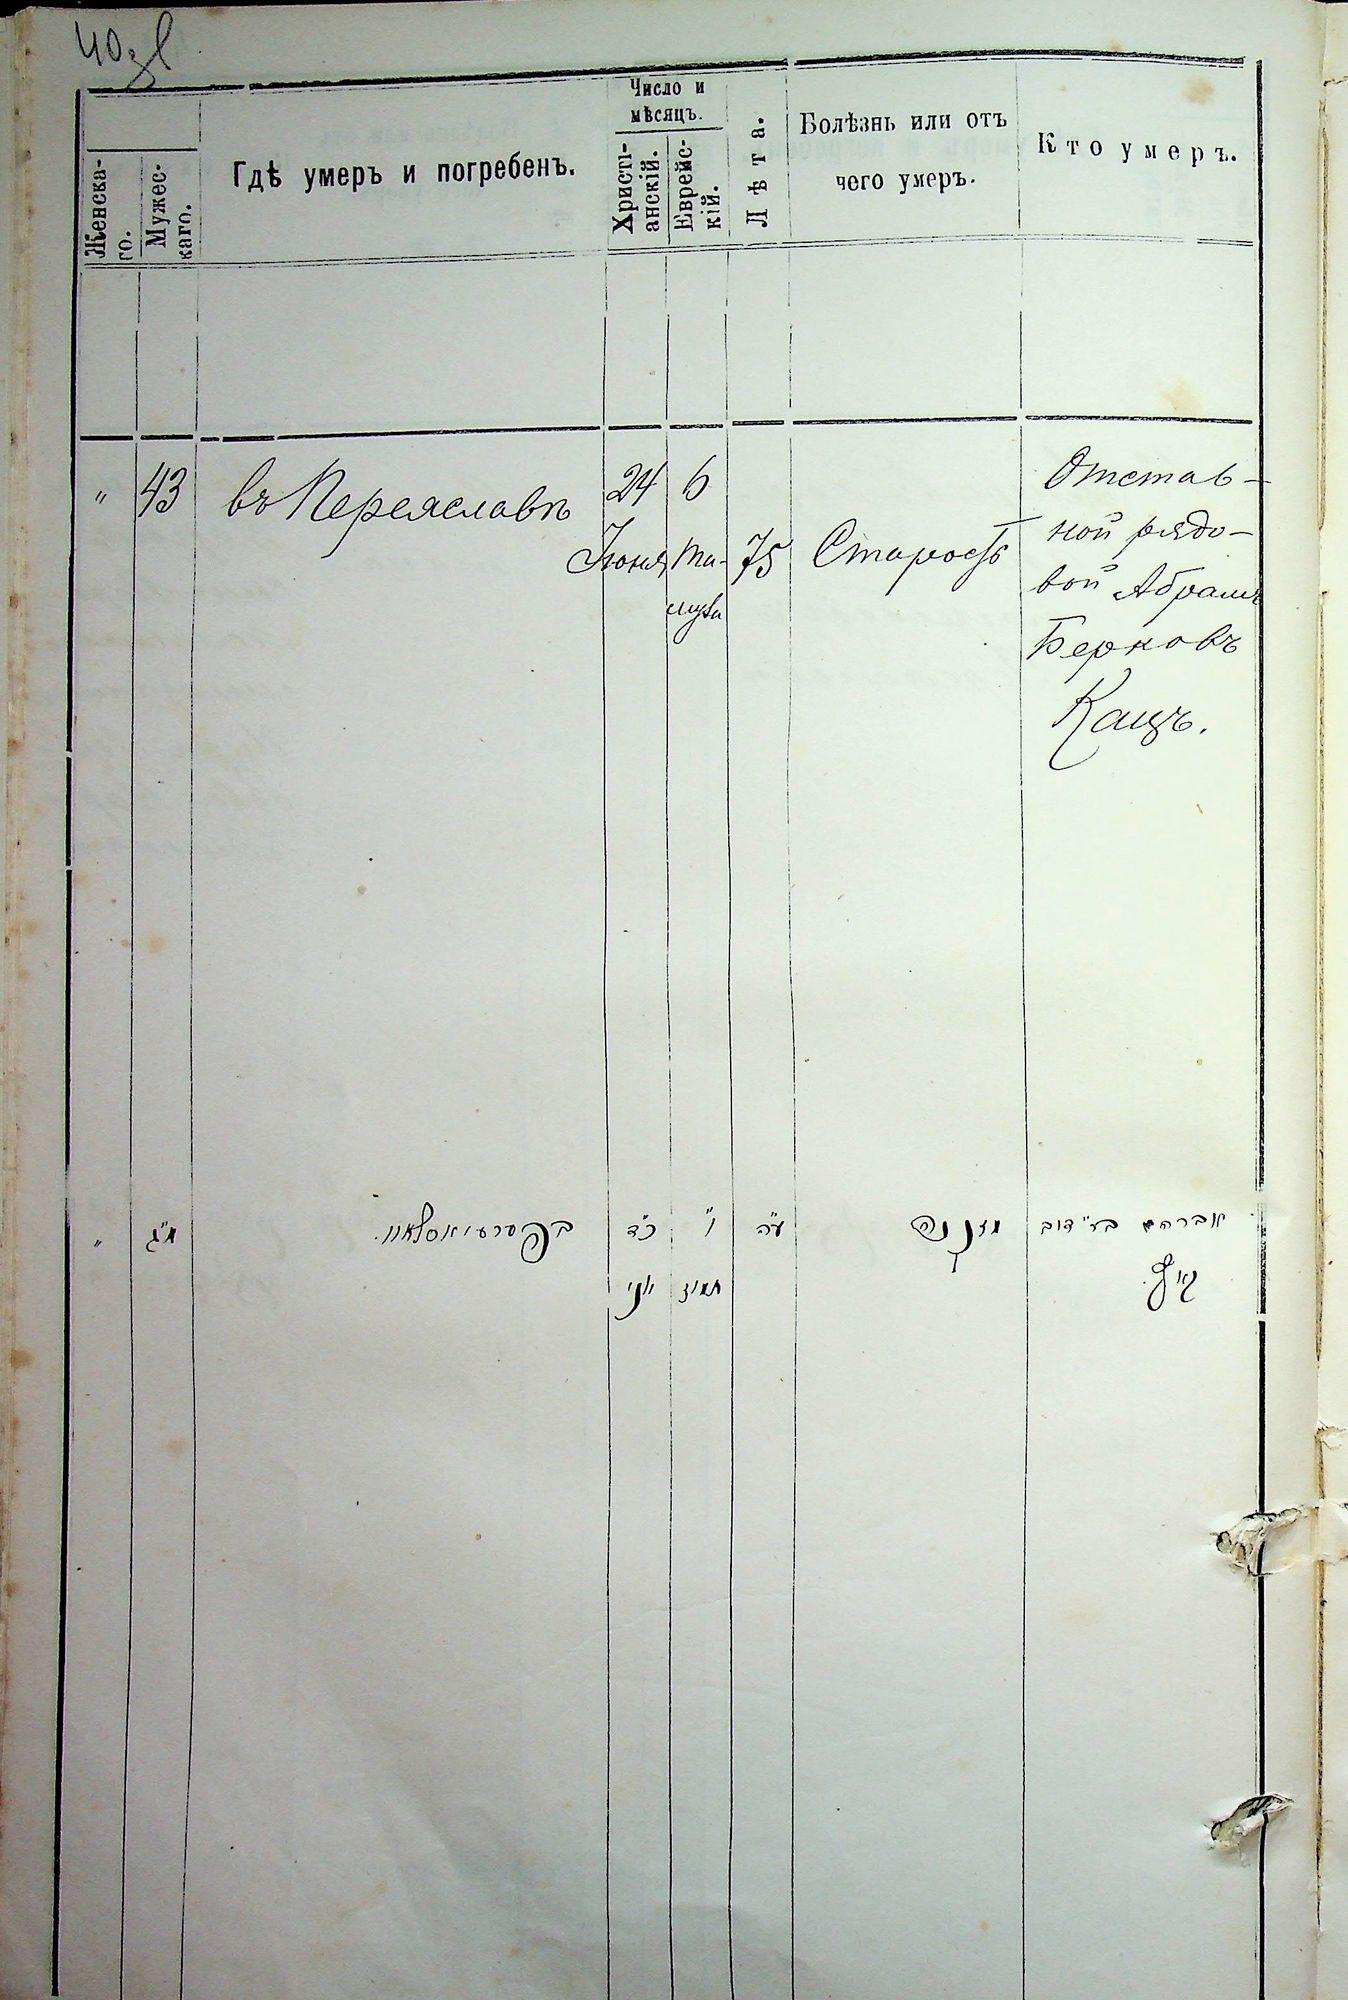 40 зв
Женска-
го.
Мужес-
каго.
Гдѣ умеръ и погребенъ.
Число и
мѣсяцъ.
Христі-
анскій.
Еврейс-
кій.
Лѣта.
Болѣзнь или отъ
чего умеръ.
Кто умеръ.
"
43
въ Переяславѣ
24
Іюня
6
Та-
муза
75
Старость
Отстав-
ной рядо-
вой Абрамъ
Берковъ
Кацъ.
"
מ"ג
בפערעיאסלאוו.
כ"ד
יוני
ו"
תמוז
ע"ה
מזקנה
אברהם בר' דוב